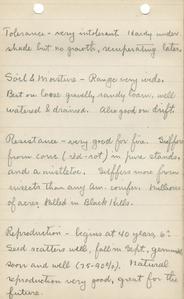 Tolerance - very intolerant. Hardy under
shade but no growth, recuperating later.
Soil & Moisture - Range very wide.
Best on loose gravelly sandy loam, well
watered & drained. Also good on drift.
Resistance - very good for fire. Suffers
from cone (red-rot) in pure stands,
and a mistletoe. Suffers more from
insects than any Am. conifer. Millions
of acres killed in Black Hills.
Reproduction - begins at 40 years.
Seed scatters well, fall in Sept, germinate
soon and well (75-90%). Natural
reproduction very good, great for the
future.